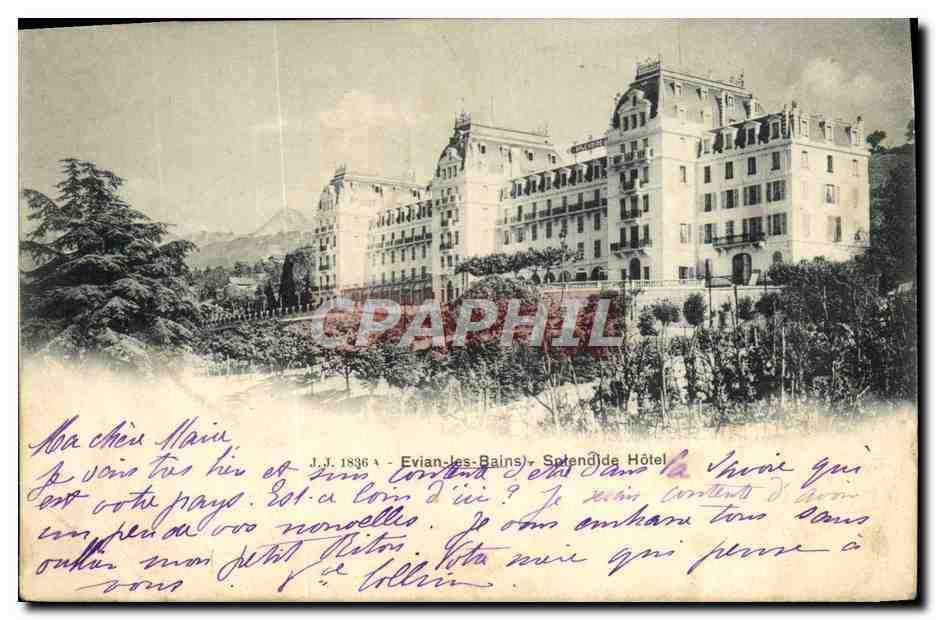 SPLENDIDE
CPAPHIL
Ma chère Marie
J.J. 1836 A - Evian-les-Bains - Splendide Hôtel
Je vais très bien et suis contente d'être dans la Savoie qui
est votre pays. Est-ce loin d'ici? Je suis contente d'avoir
un peu de vos nouvelles. Je vous embrasse tous sans
oublier mon petit Riton. Votre mère qui pense à
vous. Vve Collin